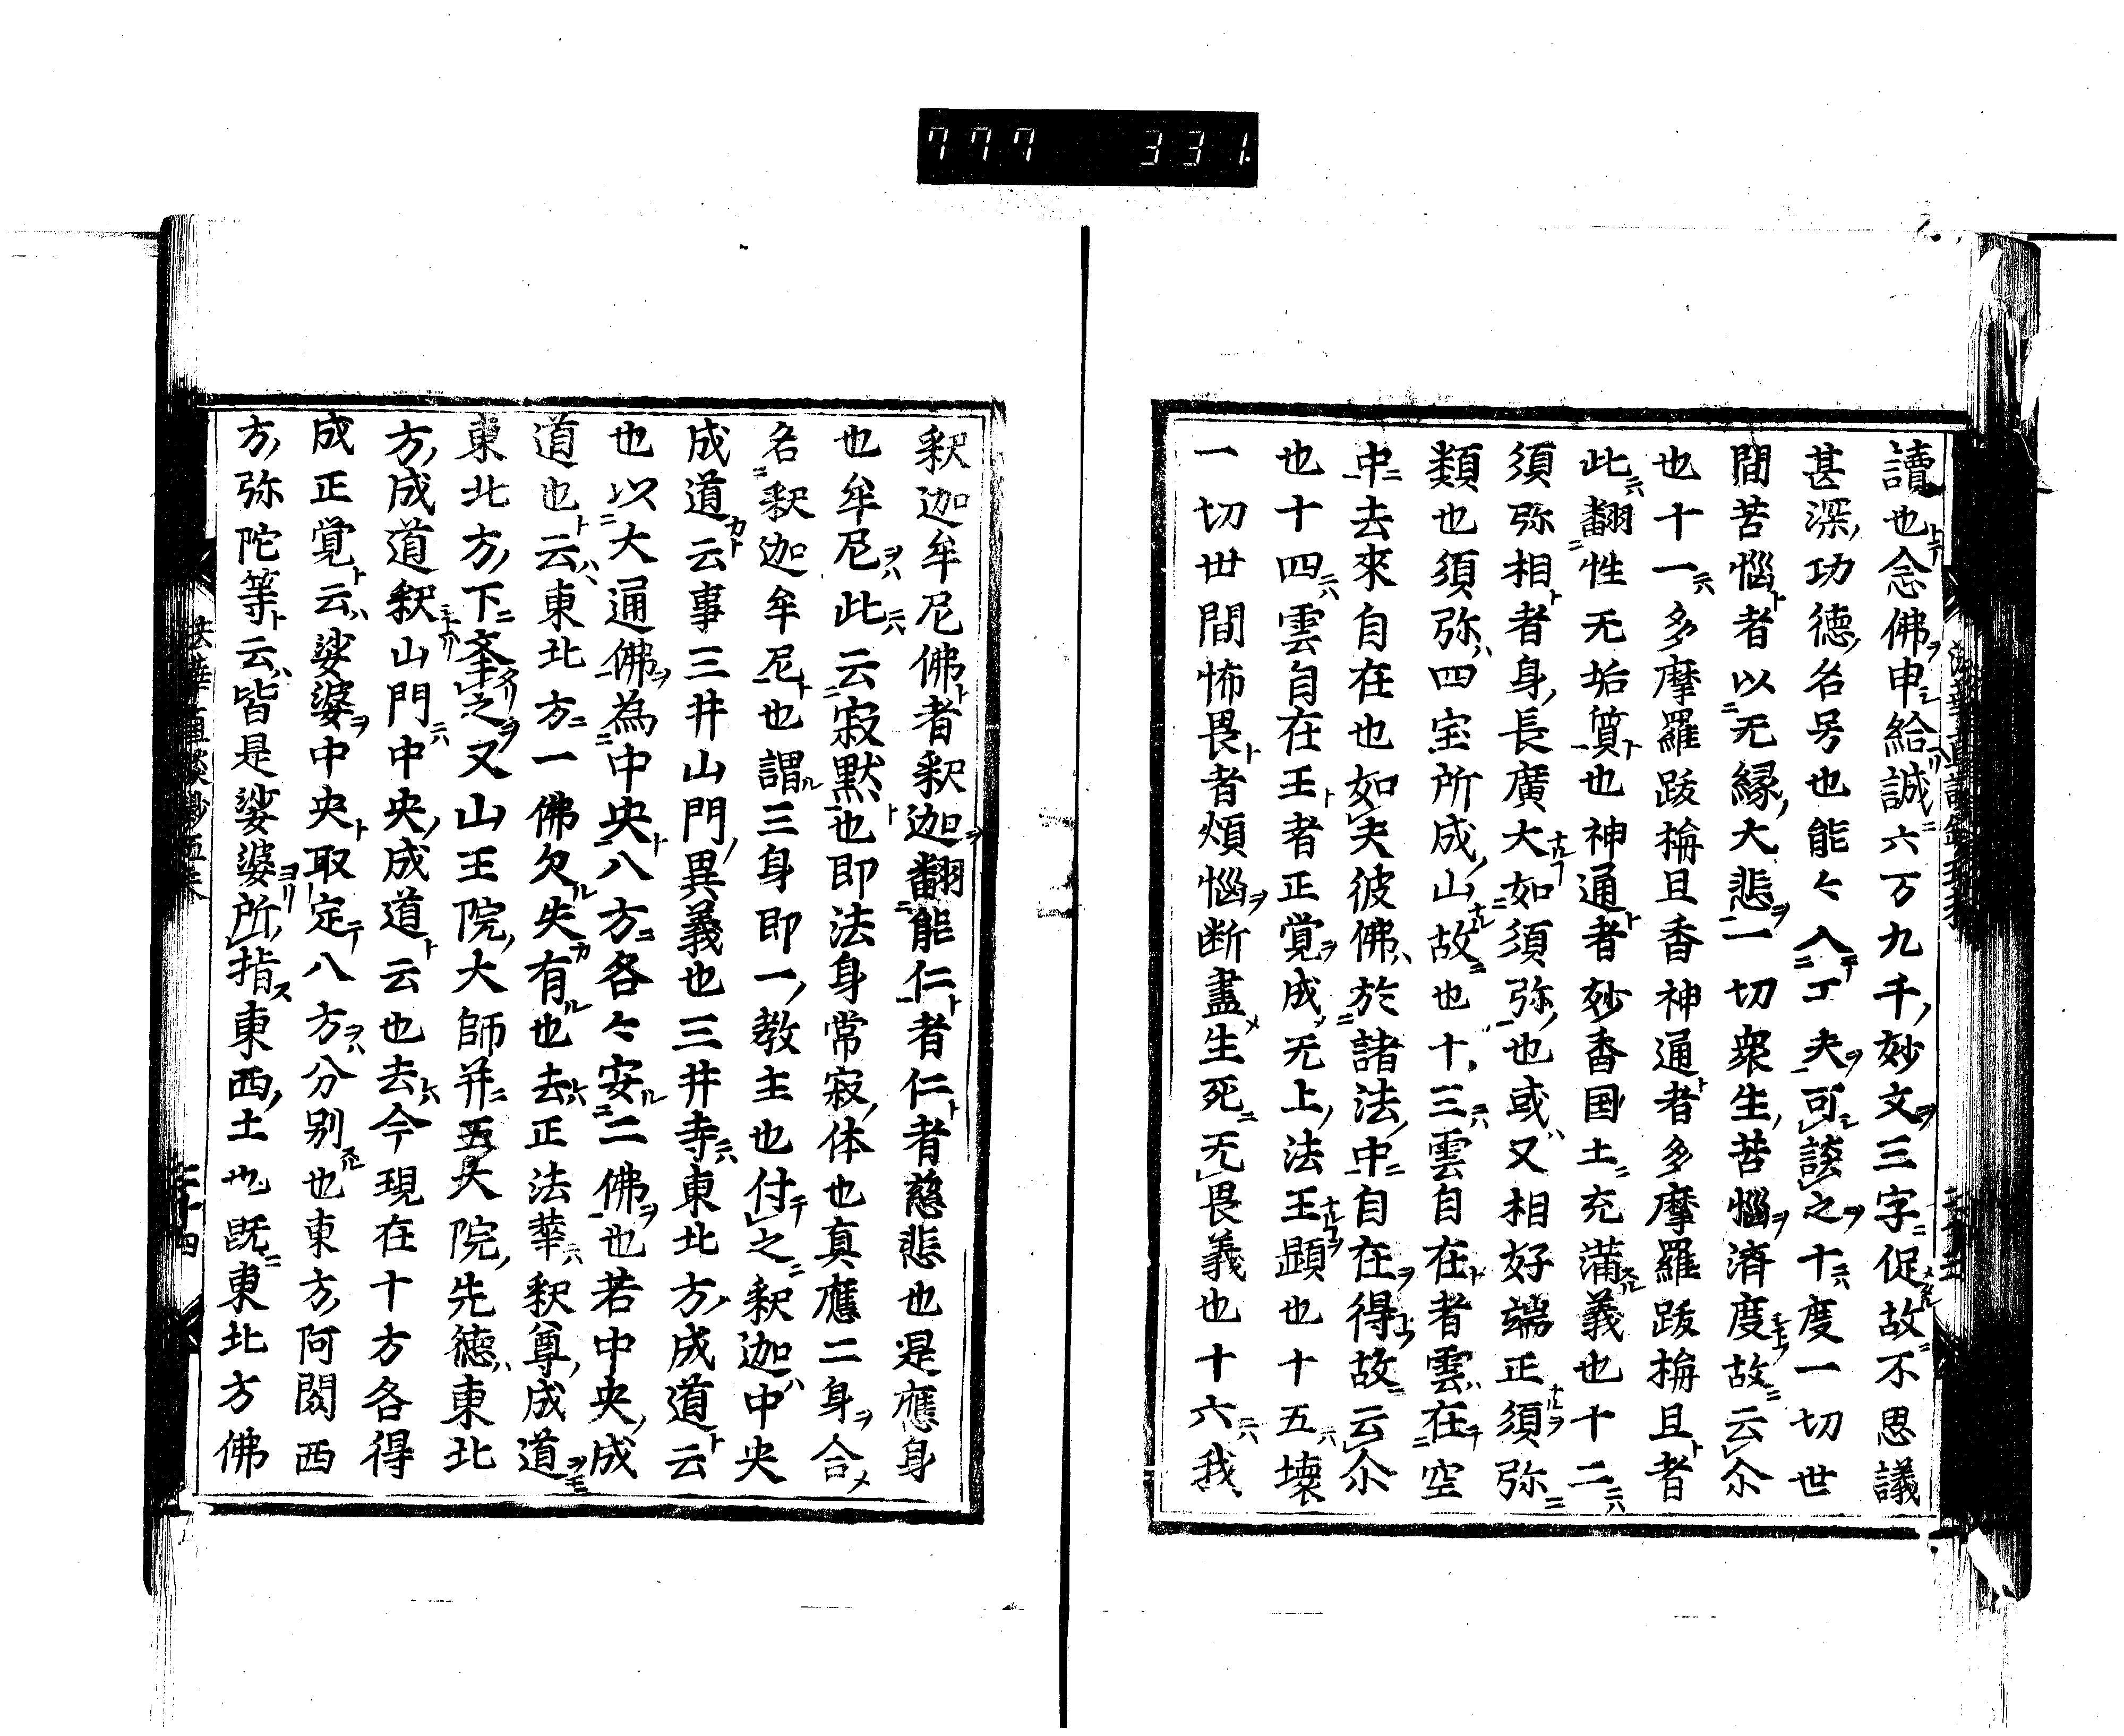 777 331.
讀也念佛申給誠六万九千妙文三字促故不思議
甚深功徳名号也能々入工夫可談之十度一切世
間苦惱者以无縁大悲一切衆生苦惱済度故云尒
也十一多摩羅跋栴且香神通者多摩羅跋栴且者
此翻性无垢質也神通者妙香国土充満義也十二
須弥相者身長廣大如須弥也或又相好端正須弥
類也須弥四宝所成山故也十三雲自在者雲在空
中去來自在也如夫彼佛於諸法中自在得故云尒
也十四雲自在王者正覚成无上法王顕也十五壊
一切世間怖畏者煩惱断盡生死无畏義也十六我
釈迦牟尼佛者釈迦翻能仁者仁者慈悲也是應身
也牟尼此云寂黙也即法身常寂体也真應二身合
名釈迦牟尼也謂三身即一教主也付之釈迦中央
成道云事三井山門異義也三井寺東北方成道云
也以大通佛為中央八方各々安二佛也若中央成
道也云東北方一佛欠失有也去正法華釈尊成道
東北方下文之又山王院大師并五大院先徳東北
方成道釈山門中央成道云也去今現在十方各得
成正覚云娑婆中央取定八方分別也東方阿閦西
方弥陀等云皆是娑婆所指東西土也既東北方佛
法華直談鈔五末 二十四